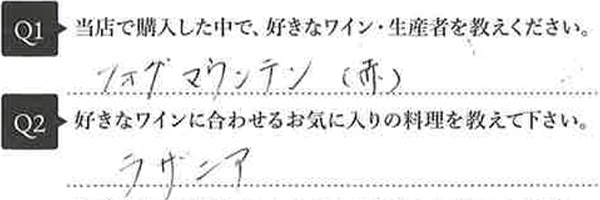 Q1 当店で購入した中で、好きなワイン・生産者を教えください。
フォグマウンテン（赤）
Q2 好きなワインに合わせるお気に入りの料理を教えて下さい。
ラザニア